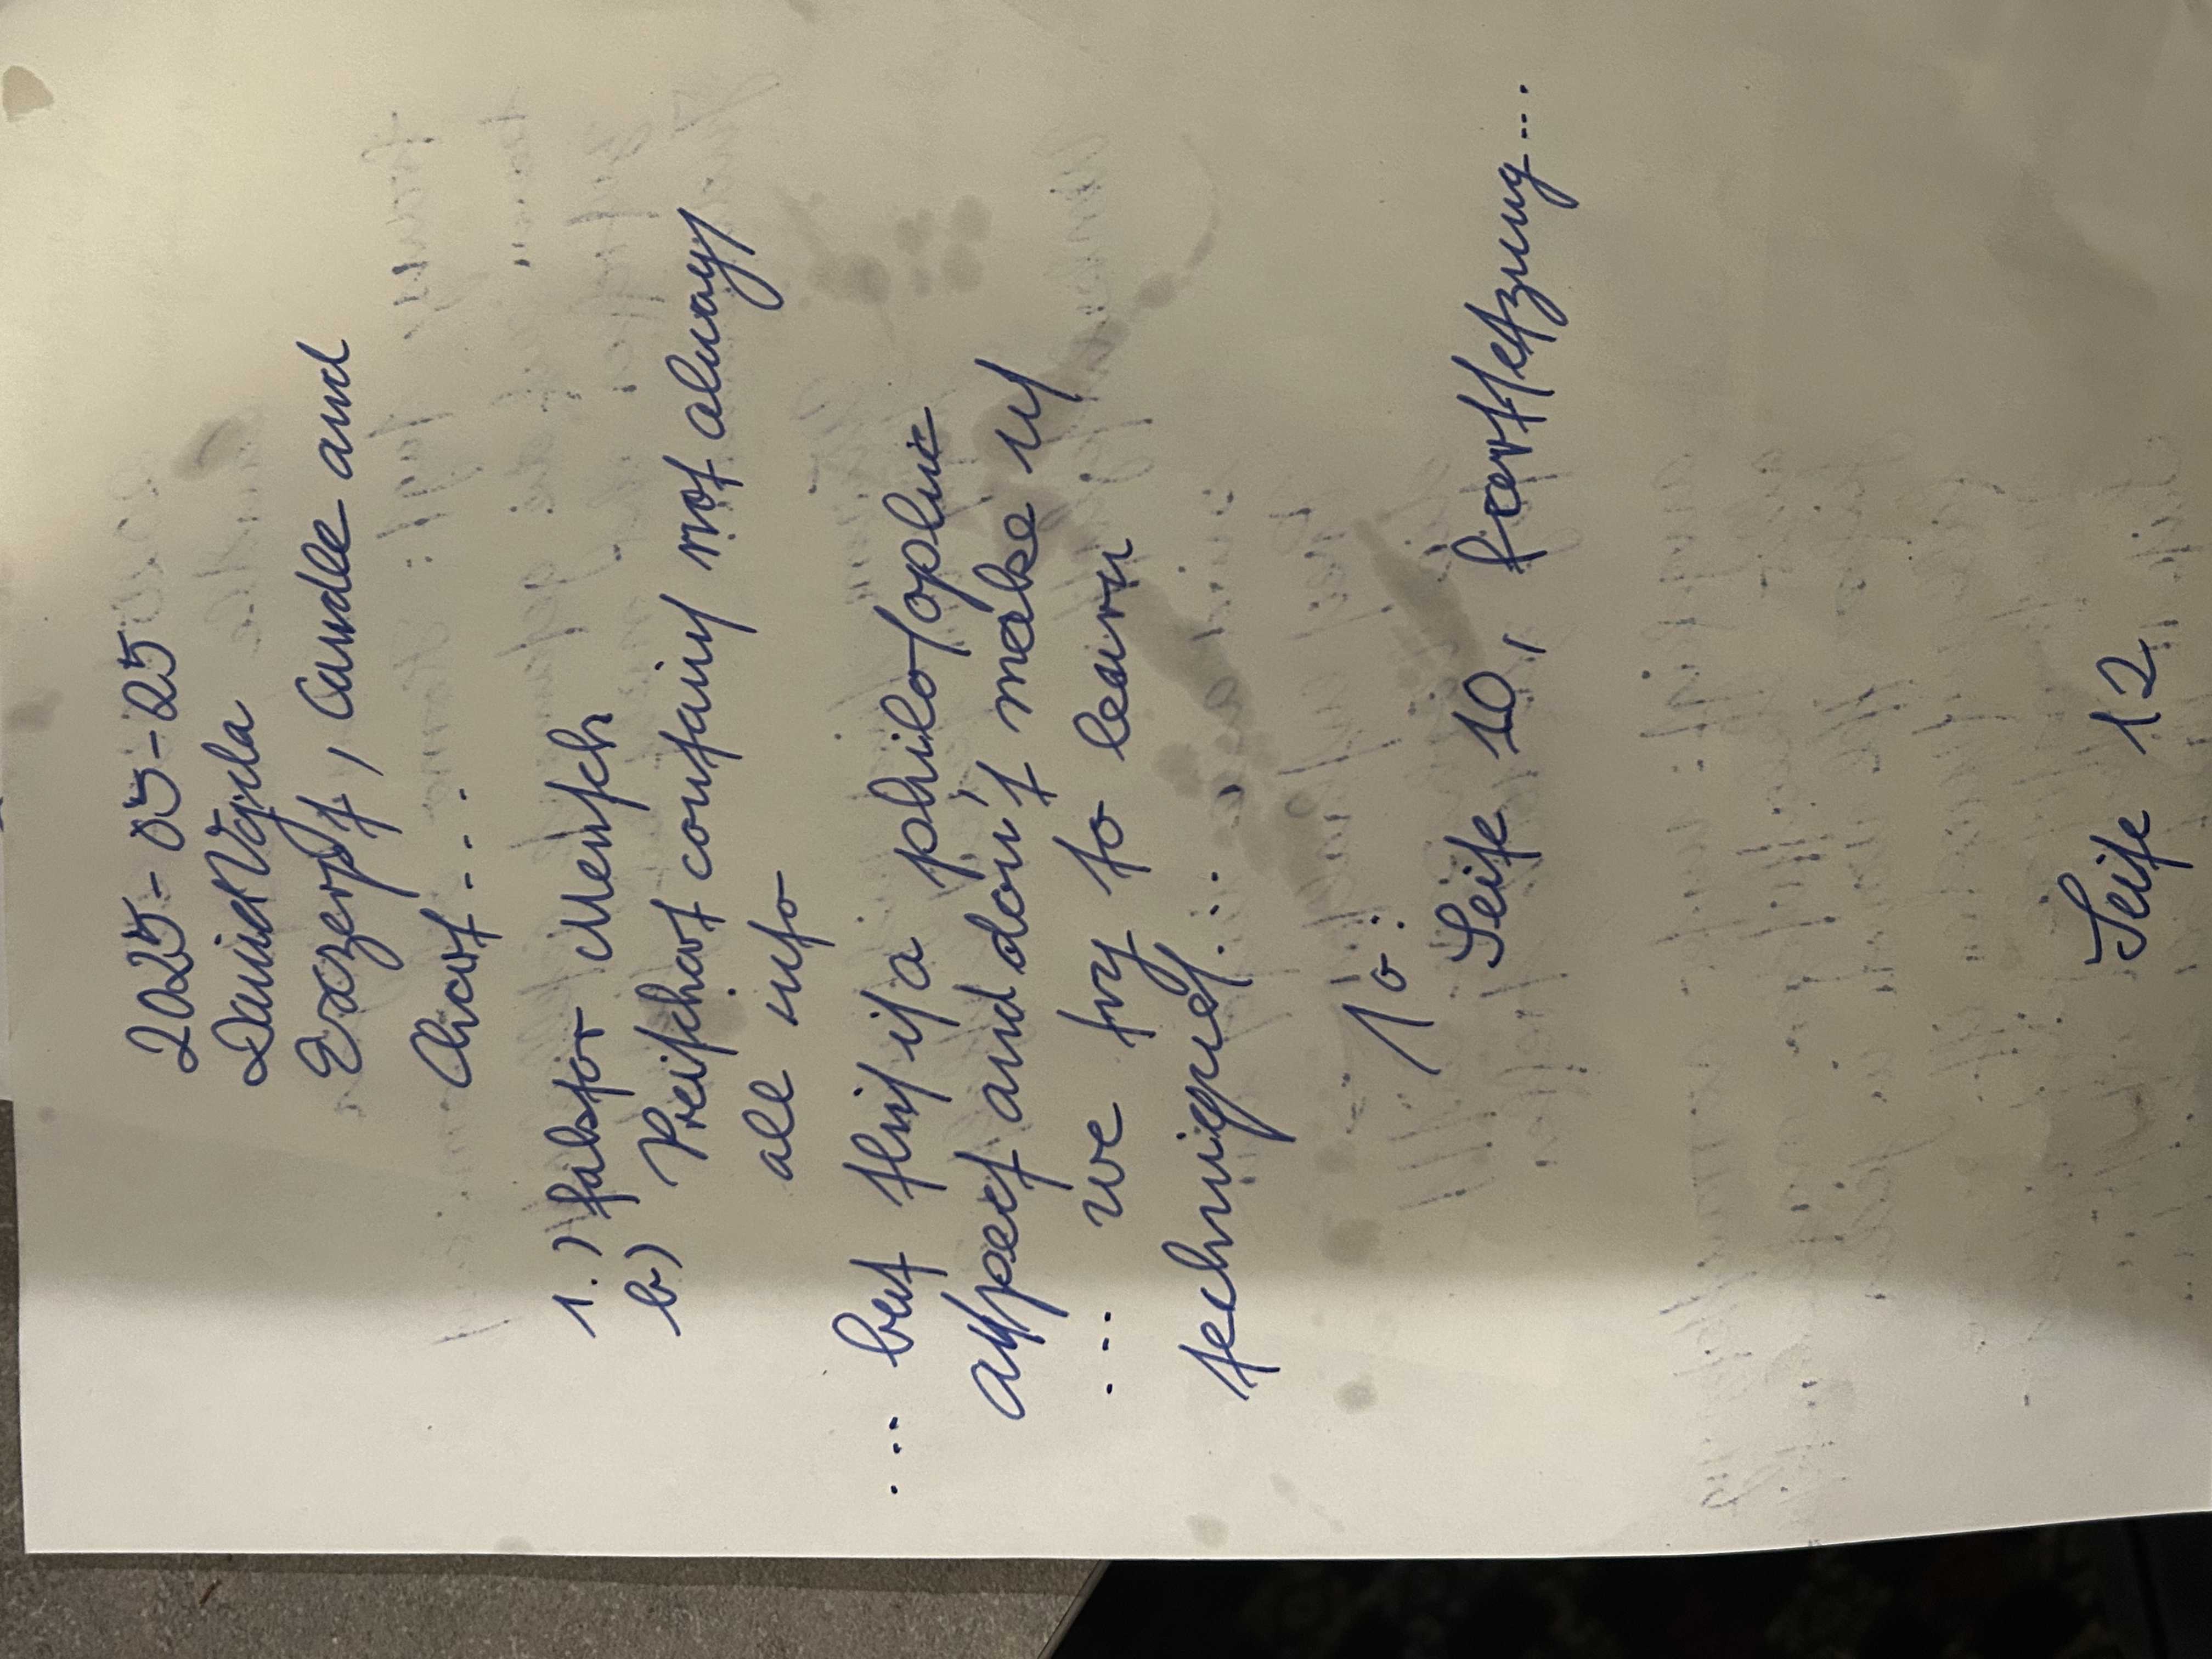 2025-03-25
David Vajda
Exzerpt, Candle and
Chart...
1.) faktor Mensch
b) Preischart contains not always
all info
... but this is a philosophic
aspect and don't make us
... we try to learn
techniques...
10:
Seite 10, Fortsetzung...
Seite 12